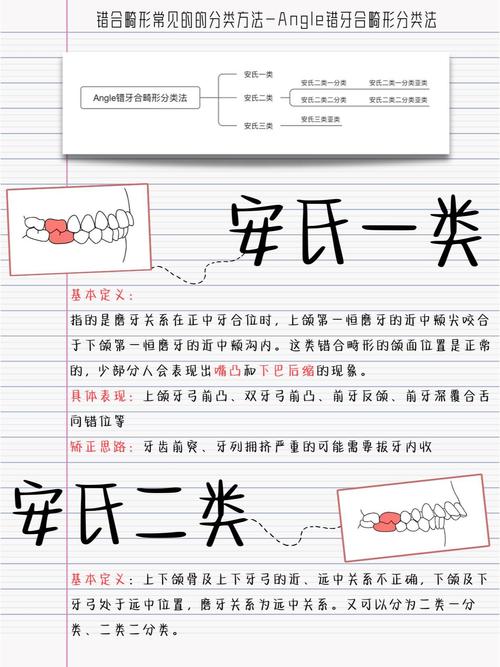 错合畸形常见的的分类方法-Angle错牙合畸形分类法
Angle错牙合畸形分类法
安氏一类
安氏二类
安氏二类一分类
安氏二类一分类亚类
安氏二类二分类
安氏二类二分类亚类
安氏三类
安氏三类亚类
安氏一类
基本定义：
指的是磨牙关系在正中牙合位时，上颌第一恒磨牙的近中颊尖咬合
于下颌第一恒磨牙的近中颊沟内。这类错合畸形的颌面位置是正常
的，少部分人会表现出嘴凸和下巴后缩的现象。
具体表现：上颌牙弓前凸、双牙弓前凸、前牙反颌、前牙深覆合舌
向错位等
矫正思路：牙齿前突、牙列拥挤严重的可能需要拔牙内收
安氏二类
基本定义：上下颌骨及上下牙弓的近、远中关系不正确，下颌及下
牙弓处于远中位置，磨牙关系为远中关系。又可以分为二类一分
类、二类二分类。